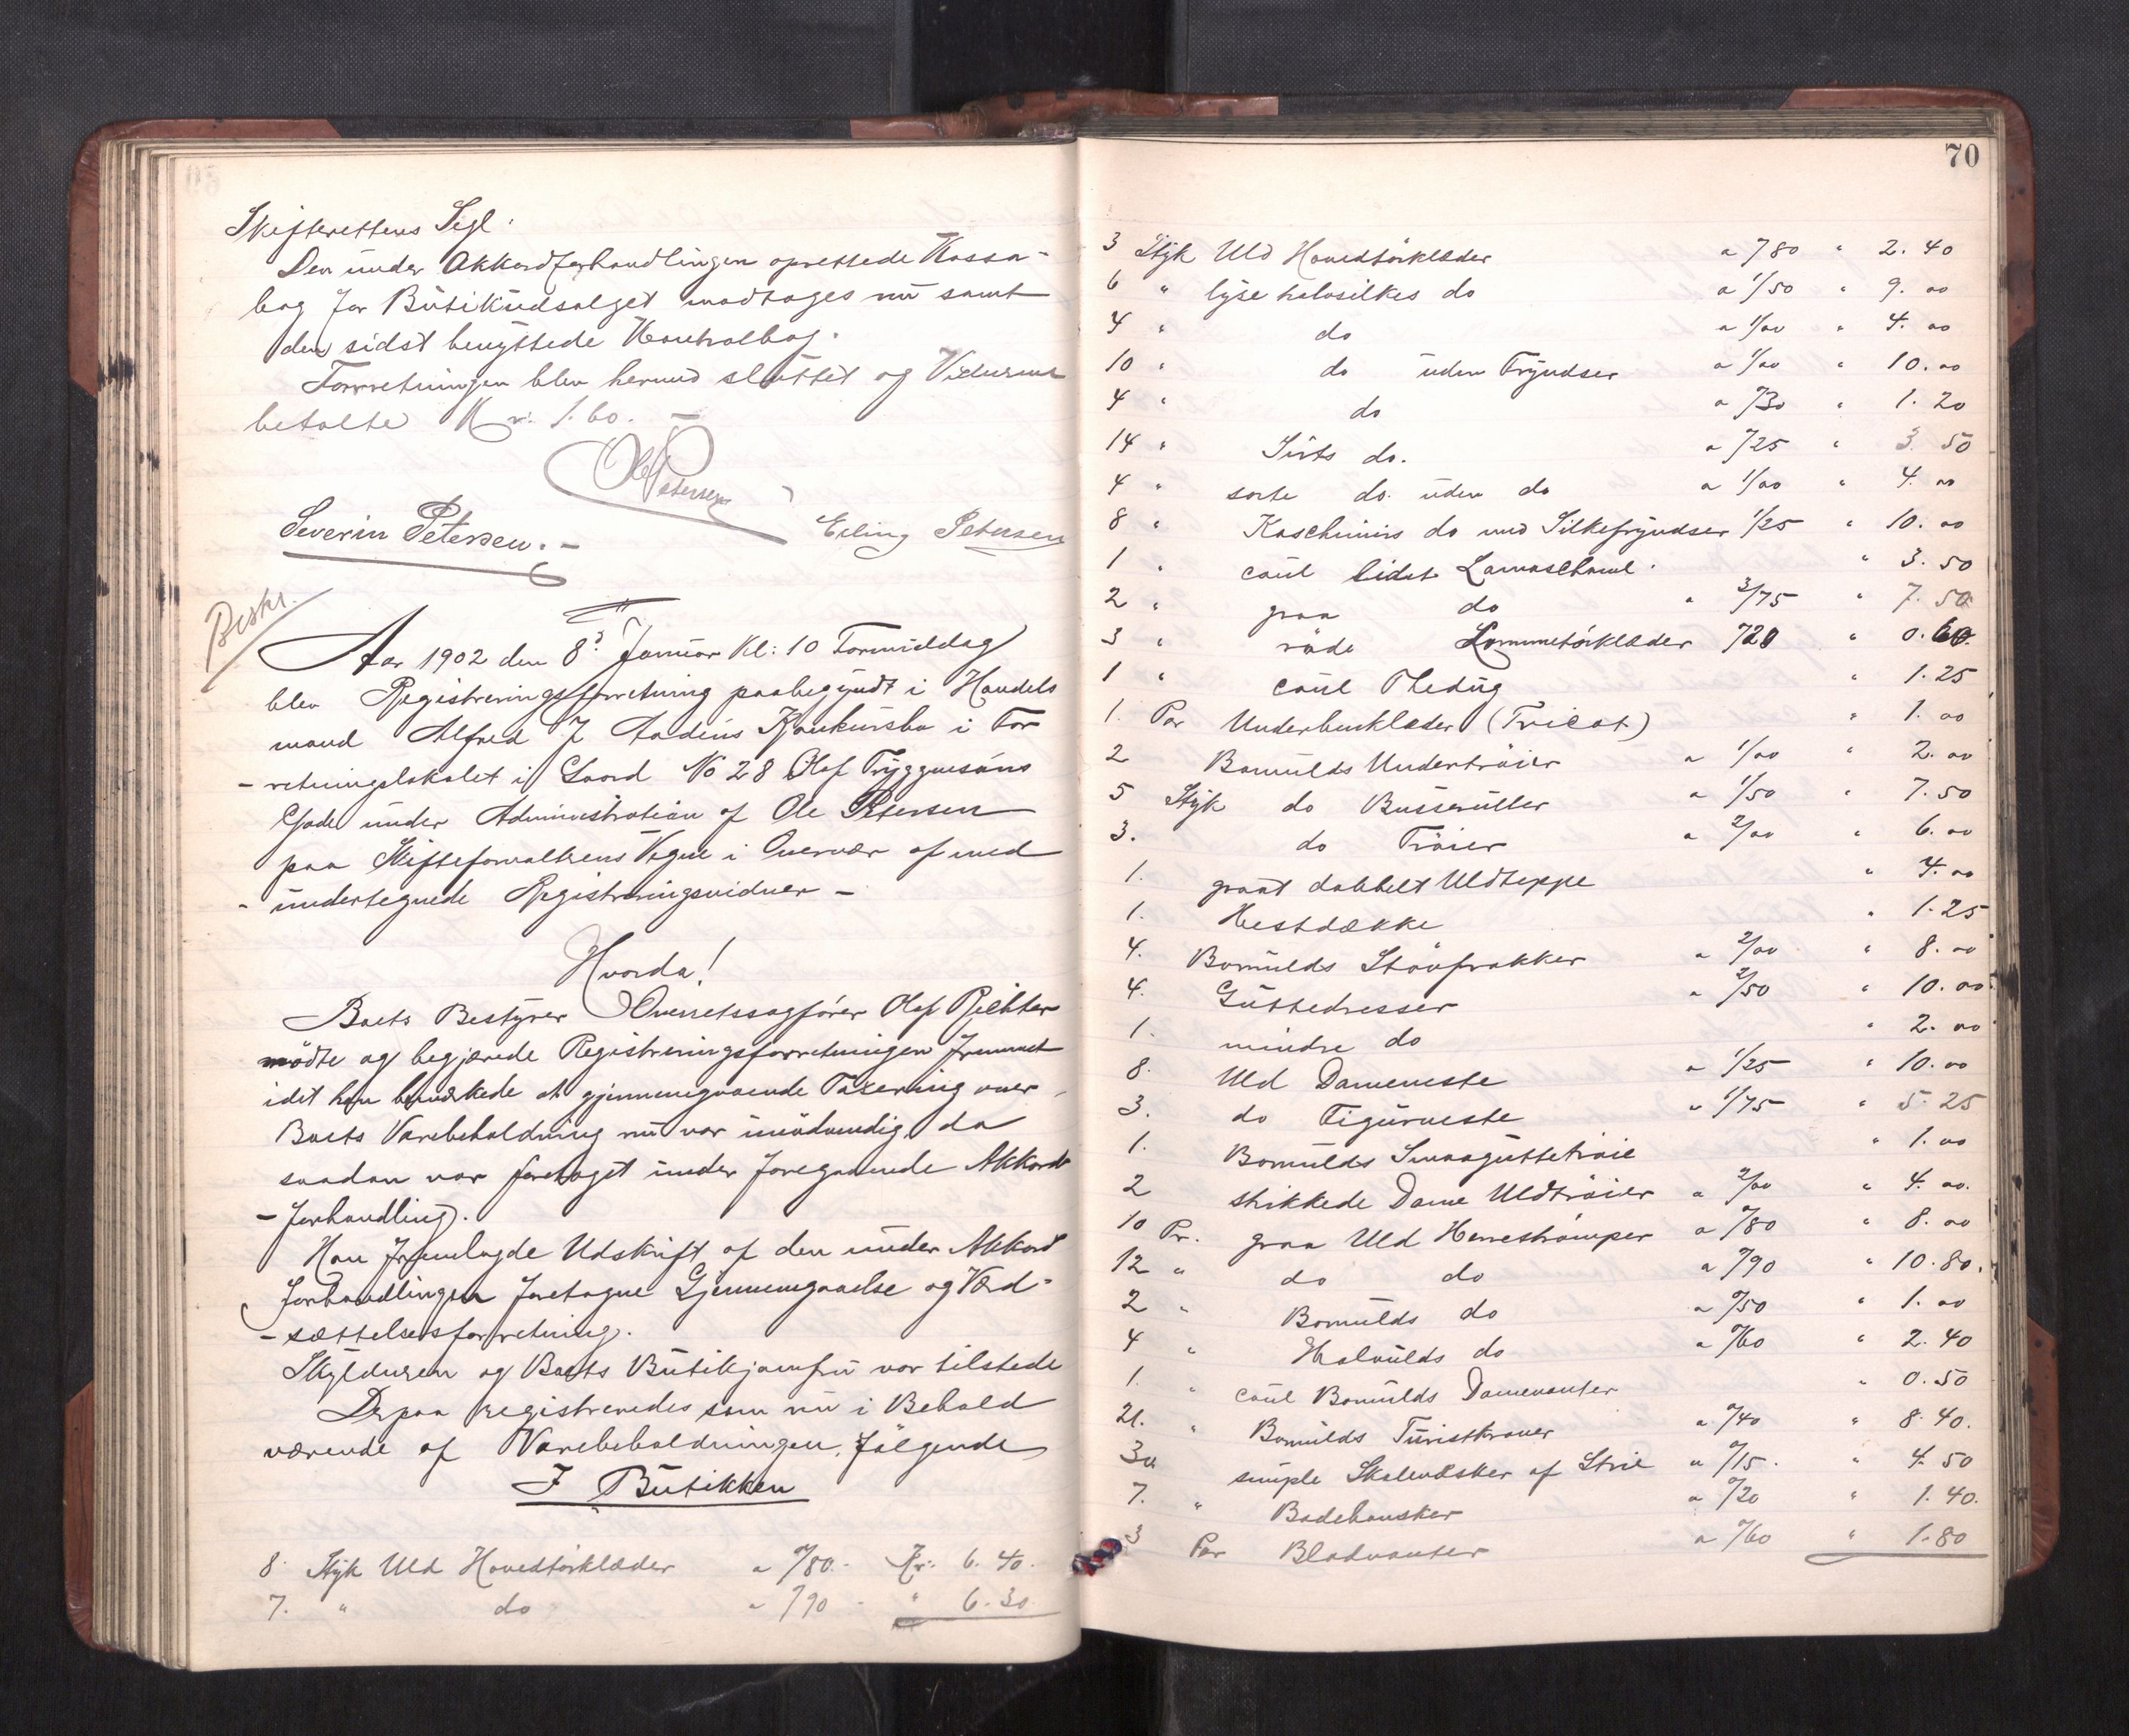 Skifterettens Segl.
Den under Akkordforhandlingen oprettede Kassa-
bog for Butikudsalget modtoges nu samt
den sidst benyttede Kontrolbog.
Forretningen blev hermed sluttet og Vidnerne
betalte Kr. 1.60. —
Ole Petersen
Severin Petersen. —
Erling Petersen
Beskr.
Aar 1902 den 8de Januar Kl: 10 Formiddag
blev Registreringsforretning paabegyndt i Handels
mand Alfred J Aadins Konkursbo i For
- retningslokalet i Gaard No 28 Olaf Tryggvesøns
Gade under Administration af Ole Petersen
paa Skifteforvalterens Vegne i Overvær af med
- undertegnede Registreringsvidner —
Hvorda!
Boets Bestyrer Overretssagfører Olaf Richter
mødte og begjærede Registreringsforretningen fremmet
idet han bemærkede at gjennemgaaende Taxering over
Boets Varebeholdning nu var unødvendig, da
saadan var foretaget under foregaaende Akkord
- forhandling.
Han fremlagde Udskrift af den under Akkord
forhandlingen foretagne Gjennemgaaelse og Værd-
- sættelsesforretning.
Skyldneren og Boets Butikjomfru var tilstede
Derpaa registreredes som nu i Behold
værende af Varebeholdningen, følgende
I Butikken
8 Styk Uld Hovedtørklæder a 0/80 - Kr: 6. 40.
7. " do a 0/90 - " 6. 30
70
3 Styk Uld Hovedtørklæder a 0/80 " 2. 40
6 " lyse halvsilkes do a 1/50 " 9. 00
4 " do a 1/00 " 4. 00
10 " do uden Fryndser a 1/00 " 10. 00
4 " do a 0/30 " 1. 20
14 " Sirts do. a 0/25 " 3. 50
4 " sorte do. uden do a 1/00 " 4. 00
8 " Kaschmirs do med Silkefryndser 1/25 " 10. 00
1 " coul lidet Lamaschawl. " 3. 50
2 " graa do " 3/75 " 7. 50
3 " røde Lommetørklæder 0/20 " 0. 60.
1 " coul Thedug " 1. 25
1. Par Underbenklæder (Tricot) " 1. 00
2 Bomulds Undertrøier a 1/00 " 2. 00
5 Styk do Busseruller a 1/50 " 7. 50
3. do Trøier a 2/00 " 6. 00
1. graat dobbelt Uldteppe " 4. 00
1. Hestdække " 1. 25
4. Bomulds Støvfrakker a 2/00 " 8. 00
4. Guttedresser a 2/50 " 10. 00
1. mindre do " 2. 00
8. Uld Dameveste a 1/25 " 10. 00
3. do Figurveste a 1/75 " 5. 25
1. Bomulds Smaaguttetrøie " 1. 00
2 strikkede Dame Uldtrøier a 2/00 " 4. 00.
10 Pr. graa Uld Herrestrømper a 0/80 " 8. 00
12 " do do a 0/90 " 10. 80.
2 " Bomulds do a 0/50 " 1. 00
4 " Halvulds do a 0/60 " 2. 40
1. " coul Bomulds Damevanter " 0. 50
21. " Bomulds a 0/40 " 8. 40.
30 simple Skolevæsker af Strie a 0/15. " 4. 50
7. " Badehansker a 0/20 " 1. 40.
3 Par Bladvanter a 0/60 " 1. 80